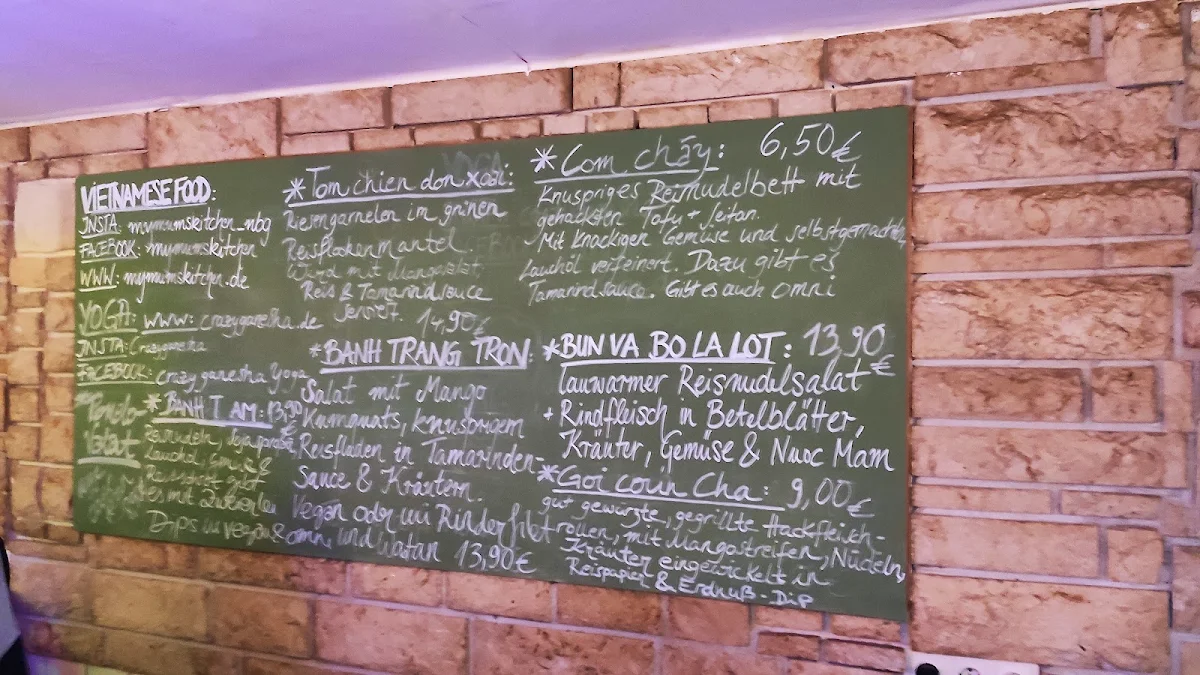 VIETNAMESE FOOD:
INSTA: mymumskitchen_nbg
FACEBOOK: mymumskitchen
WWW: mymumskitchen.de
YOGA: WWW: crazyganesha.de
INSTA: Crazyganesha
FACEBOOK: crazy ganesha Yoga
* BANH T AM: 13,90
€
Lauchöl
es mit
Dips in vegan & omni
* Tom chien don xoai:
Riesengarnelen im grünen
Reisflockenmantel.
Wird mit Mangosalat,
Reis & Tamarindsauce
serviert. 14,90€
* BANH TRANG TRON:
Salat mit Mango
Kumquats, knusprigem
Reisfladen in Tamarinden-
Sauce & Kräutern.
Vegan oder mit Rinderfilet
und 13,90€
* Com cháy: 6,50€
Knuspriges Reisnudelbett mit
gehackten Tofu + Seitan.
Mit Knackigen Gemüse und selbstgemachten
Lauchöl verfeinert. Dazu gibt es
Tamarindsauce. Gibt es auch omni
* BUN VA BO LA LOT: 13,90
€
Lauwarmer Reisnudelsalat
+ Rindfleisch in Betelblätter,
Kräuter, Gemüse & Nuoc Mam
* Goi coun Cha: 9,00€
gut gewürzte, gegrillte Hackfleisch-
rollen, mit Mangostreifen, Nudeln,
Kräuter eingewickelt in
Reispapier & Erdnuß-Dip